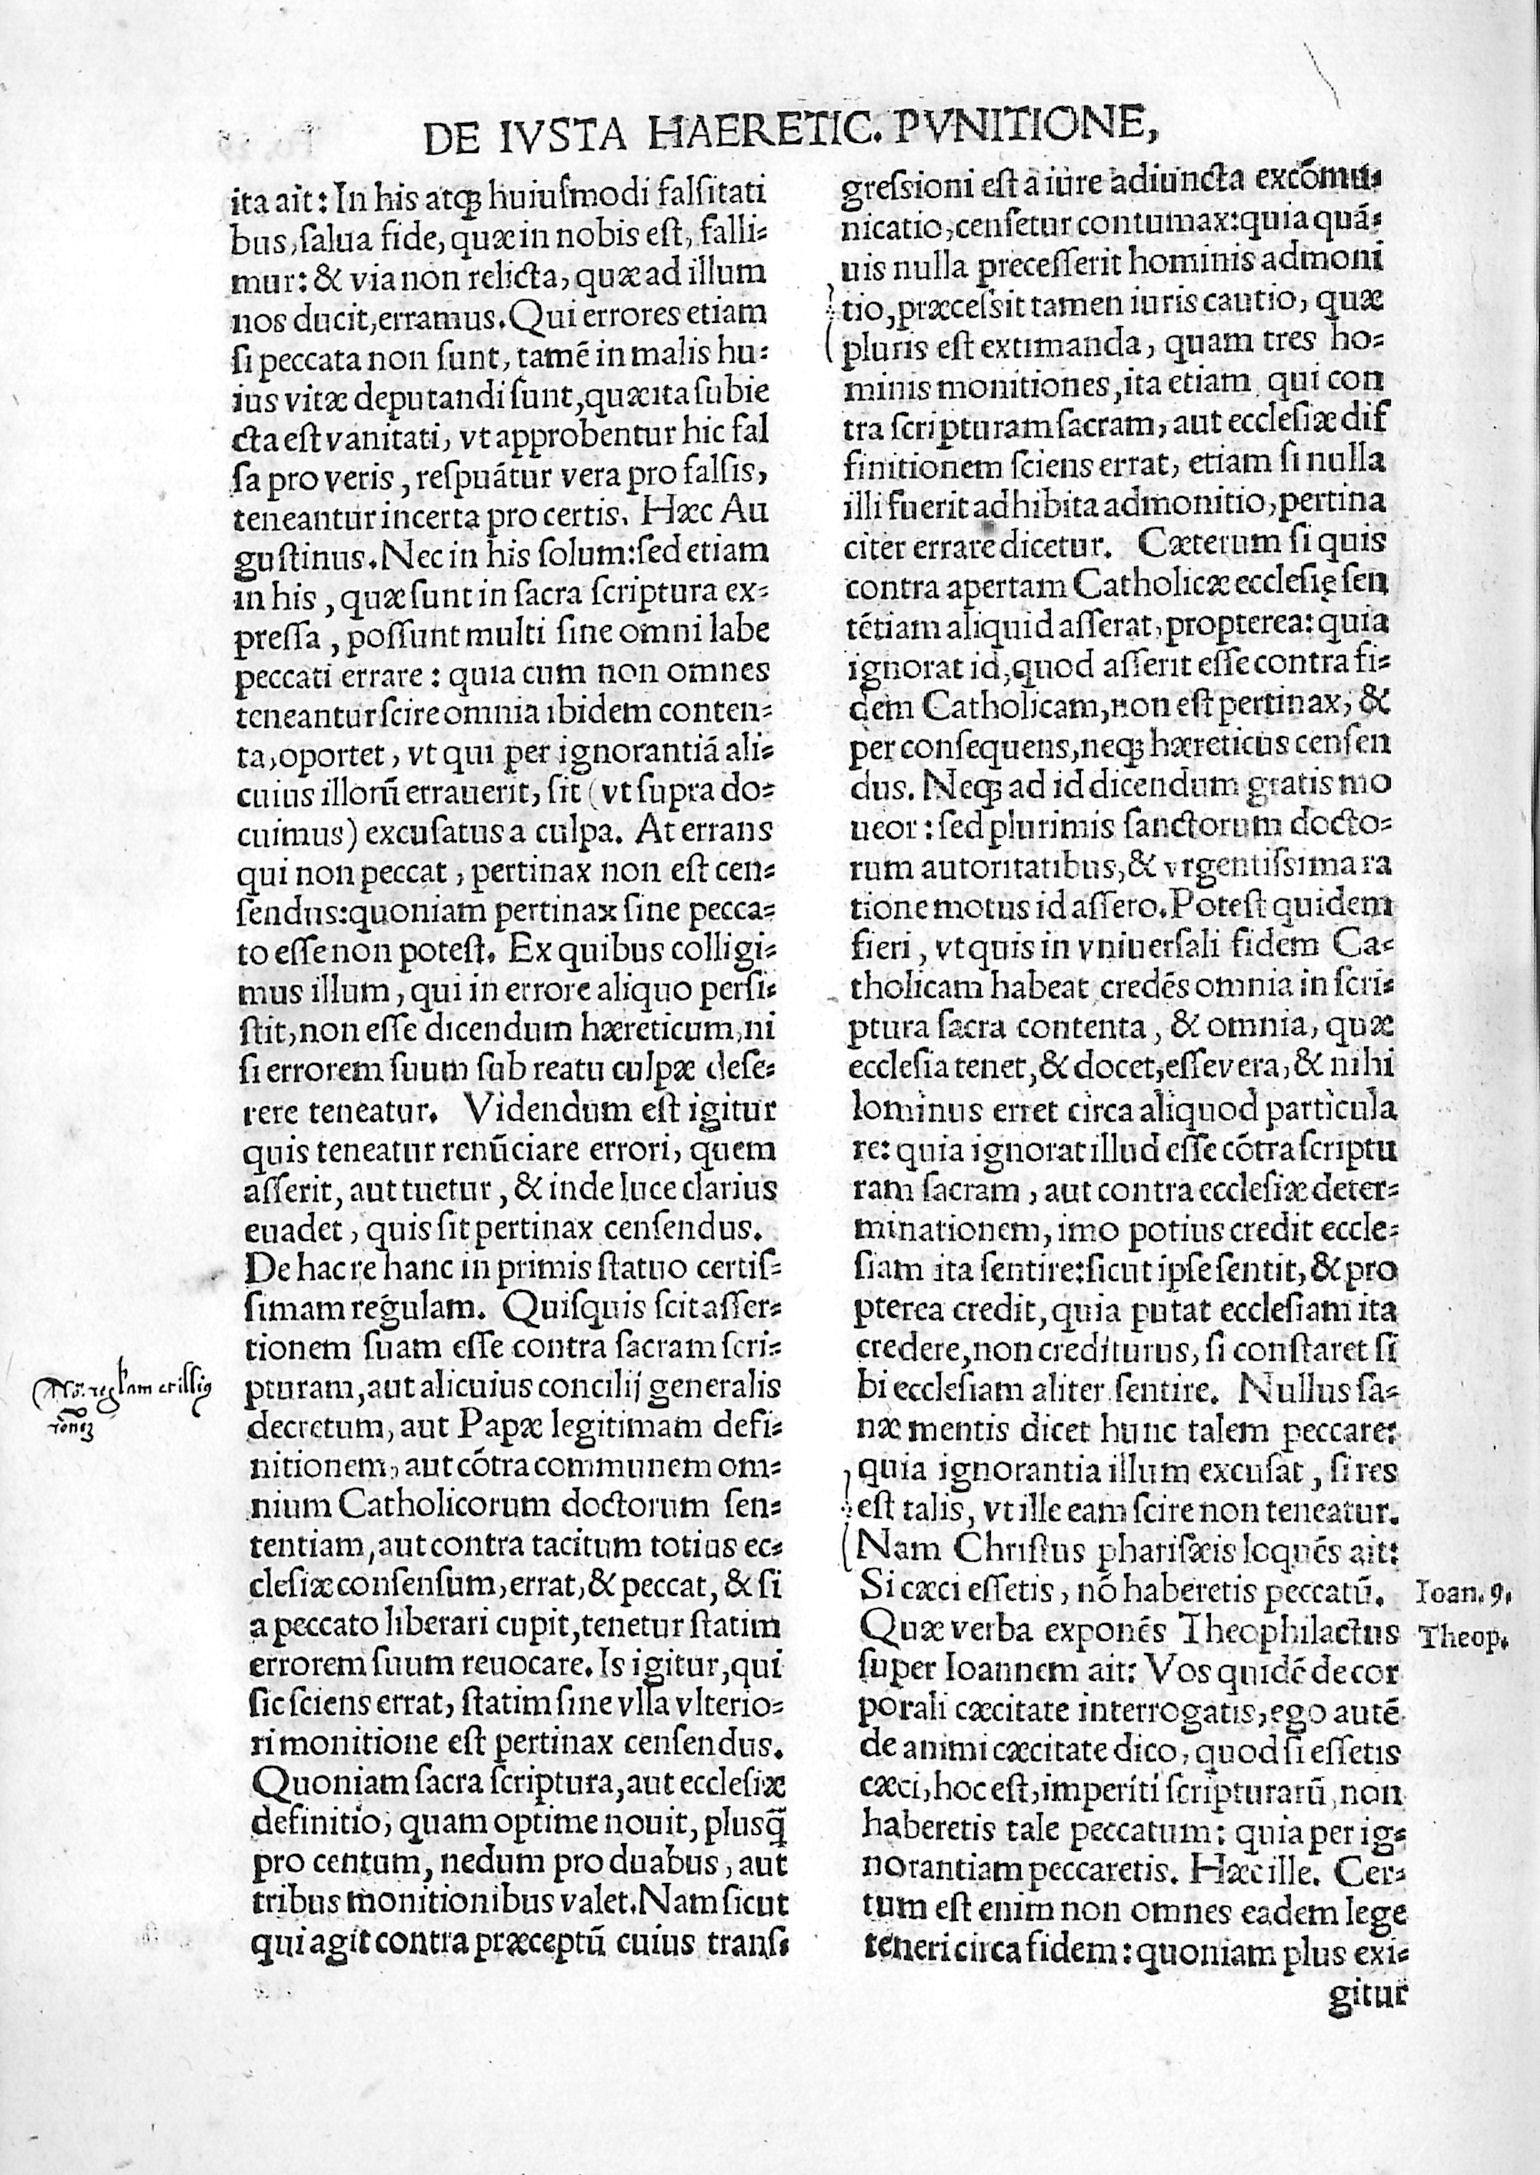 DE IVSTA HAERETIC. PVNITIONE,
ita ait: In his atqꝫ huiuſmodi falſitati
bus, ſalua fide, quæ in nobis eſt, falli-
mur: & via non relicta, quæ ad illum
nos ducit, erramus. Qui errores etiam
ſi peccata non ſunt, tamẽ in malis hu-
ius vitæ deputandi ſunt, quæ ita ſubie
cta eſt vanitati, vt approbentur hic fal
ſa pro veris, reſpuãtur vera pro falſis,
teneantur incerta pro certis. Hæc Au
guſtinus. Nec in his ſolum: ſed etiam
in his, quæ ſunt in ſacra ſcriptura ex-
preſſa, poſſunt multi ſine omni labe
peccati errare: quia cum non omnes
teneantur ſcire omnia ibidem conten-
ta, oportet, vt qui per ignorantiã ali-
cuius illorũ errauerit, ſit (vt ſupra do-
cuimus) excuſatus a culpa. At errans
qui non peccat, pertinax non eſt cen-
ſendus: quoniam pertinax ſine pecca-
to eſſe non poteſt. Ex quibus colligi-
mus illum, qui in errore aliquo perſi-
ſtit, non eſſe dicendum hæreticum, ni
ſi errorem ſuum ſub reatu culpæ deſe-
rere teneatur. Videndum eſt igitur
quis teneatur renũciare errori, quem
aſſerit, aut tuetur, & inde luce clarius
euadet, quis ſit pertinax cenſendus.
De hac re hanc in primis ſtatuo certiſ-
ſimam regulam. Quiſquis ſcit aſſer-
tionem ſuam eſſe contra ſacram ſcri-
pturam, aut alicuius concilij generalis
decretum, aut Papæ legitimam defi-
nitionem, aut cõtra communem om-
nium Catholicorum doctorum ſen-
tentiam, aut contra tacitum totius ec-
cleſiæ conſenſum, errat, & peccat, & ſi
a peccato liberari cupit, tenetur ſtatim
errorem ſuum reuocare. Is igitur, qui
ſic ſciens errat, ſtatim ſine vlla vlterio-
ri monitione eſt pertinax cenſendus.
Quoniam ſacra ſcriptura, aut eccleſiæ
definitio, quam optime nouit, plusq̃
pro centum, nedum pro duabus, aut
tribus monitionibus valet. Nam ſicut
qui agit contra præceptũ cuius tranſ-
greſſioni eſt a iure adiuncta excõmu-
nicatio, cenſetur contumax: quia quã-
uis nulla preceſſerit hominis admoni
tio, præceſsit tamen iuris cautio, quæ
pluris eſt extimanda, quam tres ho-
minis monitiones, ita etiam qui con
tra ſcripturam ſacram, aut eccleſiæ dif
finitionem ſciens errat, etiam ſi nulla
illi fuerit adhibita admonitio, pertina
citer errare dicetur. Cæterum ſi quis
contra apertam Catholicæ eccleſię ſen
tẽtiam aliquid aſſerat, propterea: quia
ignorat id, quod aſſerit eſſe contra fi-
dem Catholicam, non eſt pertinax, &
per conſequens, neqꝫ hæreticus cenſen
dus. Neqꝫ ad id dicendum gratis mo
ueor: ſed plurimis ſanctorum docto-
rum autoritatibus, & vrgentiſsima ra
tione motus id aſſero. Poteſt quidem
fieri, vt quis in vniuerſali fidem Ca-
tholicam habeat credẽs omnia in ſcri-
ptura ſacra contenta, & omnia, quæ
eccleſia tenet, & docet, eſſe vera, & nihi
lominus erret circa aliquod particula
re: quia ignorat illud eſſe cõtra ſcriptu
ram ſacram, aut contra eccleſiæ deter-
minationem, imo potius credit eccle-
ſiam ita ſentire: ſicut ipſe ſentit, & pro
pterea credit, quia putat eccleſiam ita
credere, non crediturus, ſi conſtaret ſi
bi eccleſiam aliter ſentire. Nullus ſa-
næ mentis dicet hunc talem peccare:
quia ignorantia illum excuſat, ſi res
eſt talis, vt ille eam ſcire non teneatur.
Nam Chriſtus phariſæis loquẽs ait:
Si cæci eſſetis, nõ haberetis peccatũ.
Quæ verba exponẽs Theophilactus
ſuper Ioannem ait: Vos quidẽ de cor
porali cæcitate interrogatis, ego autẽ
de animi cæcitate dico, quod ſi eſſetis
cæci, hoc eſt, imperiti ſcripturarũ, non
haberetis tale peccatum: quia per ig-
norantiam peccaretis. Hæc ille. Cer-
tum eſt enim non omnes eadem lege
teneri circa fidem: quoniam plus exi-
gitur
Ioan. 9.
Theop.